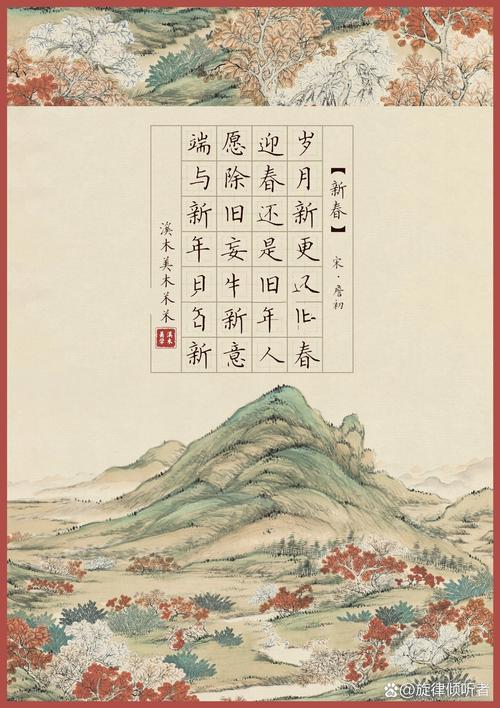 【新春】
宋·詹初
岁月新更春
迎春还是旧年人
愿除旧妄牛新意
端与新年日新
溪木美木
溪木
美学
@旋律倾听者